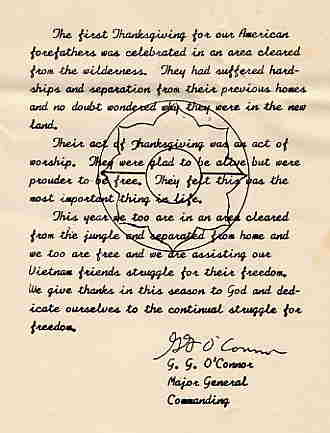 The first Thanksgiving for our American
forefathers was celebrated in an area cleared
from the wilderness. They had suffered hard-
ships and separation from their previous homes
and no doubt wondered why they were in the new
land.
Their act of Thanksgiving was an act of
worship. They were glad to be alive but were
prouder to be free. They felt this was the
most important thing in life.
This year we too are in an area cleared
from the jungle and separated from home and
we too are free and we are assisting our
Vietnam friends struggle for their freedom.
We give thanks in this season to God and ded-
icate ourselves to the continual struggle for
freedom.
GG O'Connor
G. G. O'Connor
Major General
Commanding